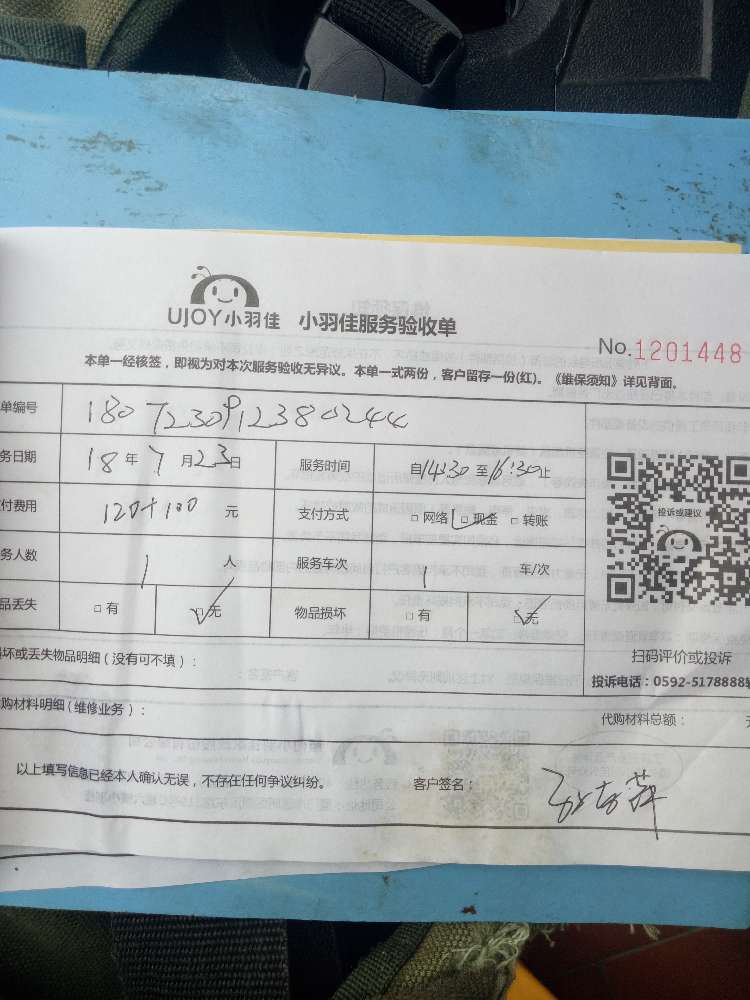 UJOY小羽佳 小羽佳服务验收单
No.1201448
本单一经核签，即视为对本次服务验收无异议。本单一式两份，客户留存一份(红)。《维保须知》详见背面。
单编号 1807230912380244
务日期 18年7月23日 服务时间 自14:30至16:30止
付费用 120+100 元 支付方式 □网络 □现金 □转账
投诉或建议
务人数 1 人 服务车次 1 车/次
品丢失 □有 □无 物品损坏 □有 □无
扫码评价或投诉
损坏或丢失物品明细(没有可不填)：
投诉电话：0592-5178888
代购材料明细(维修业务)：
代购材料总额：
以上填写信息已经本人确认无误，不存在任何争议纠纷。 客户签名：